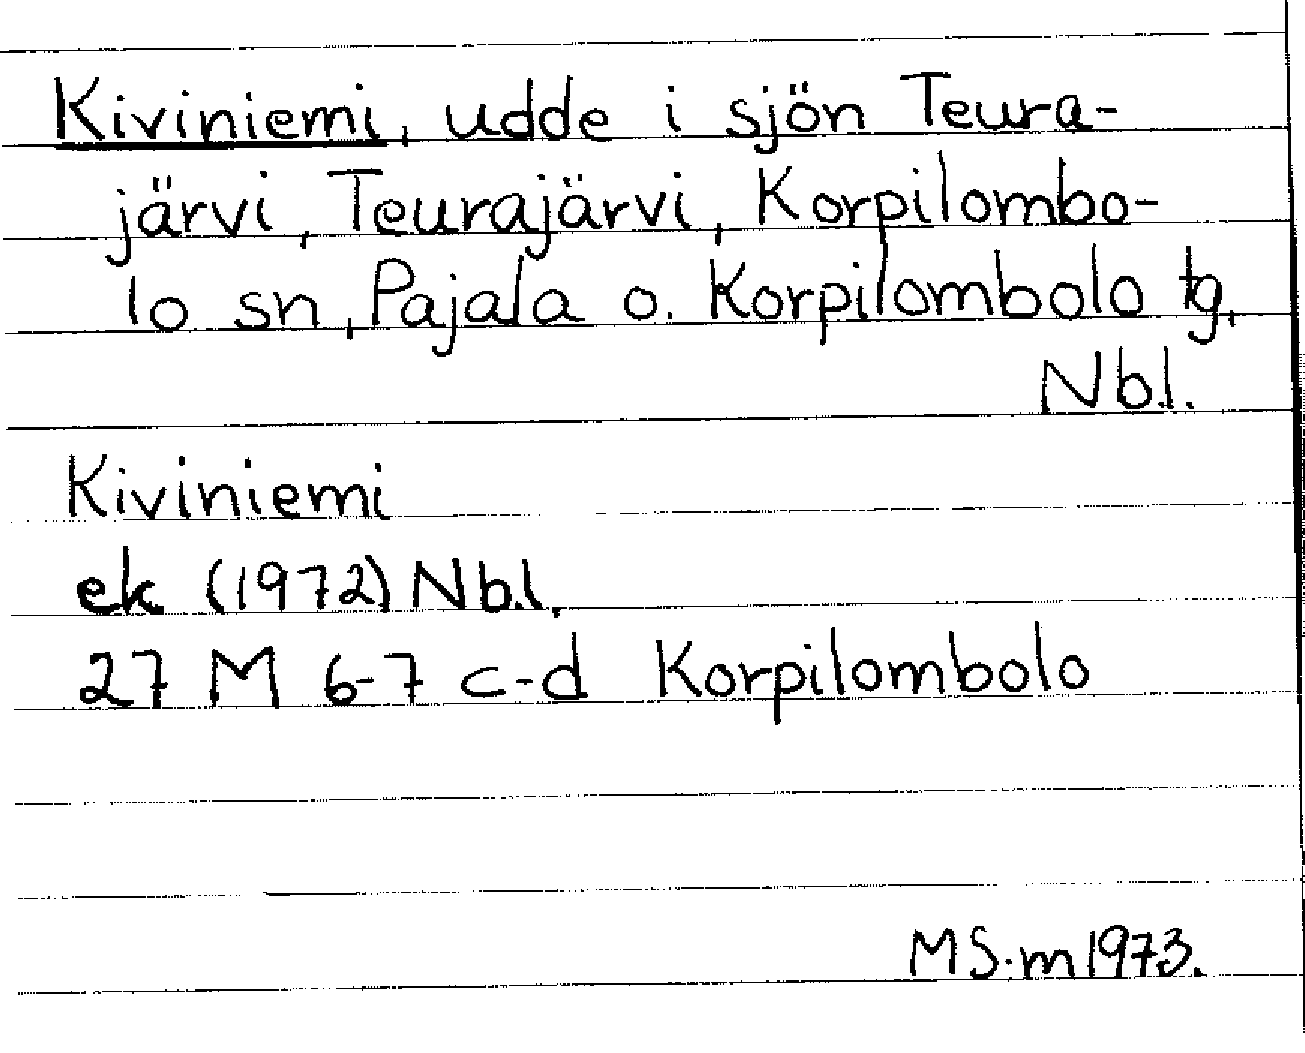 Kiviniemi, udde i sjön Teura-
järvi, Teurajärvi, Korpilombo-
lo sn, Pajala o. Korpilombolo tg,
Nb.l.
Kiviniemi
ek (1972) Nb.l.
27 M 6-7 c-d Korpilombolo
MS.m 1973.